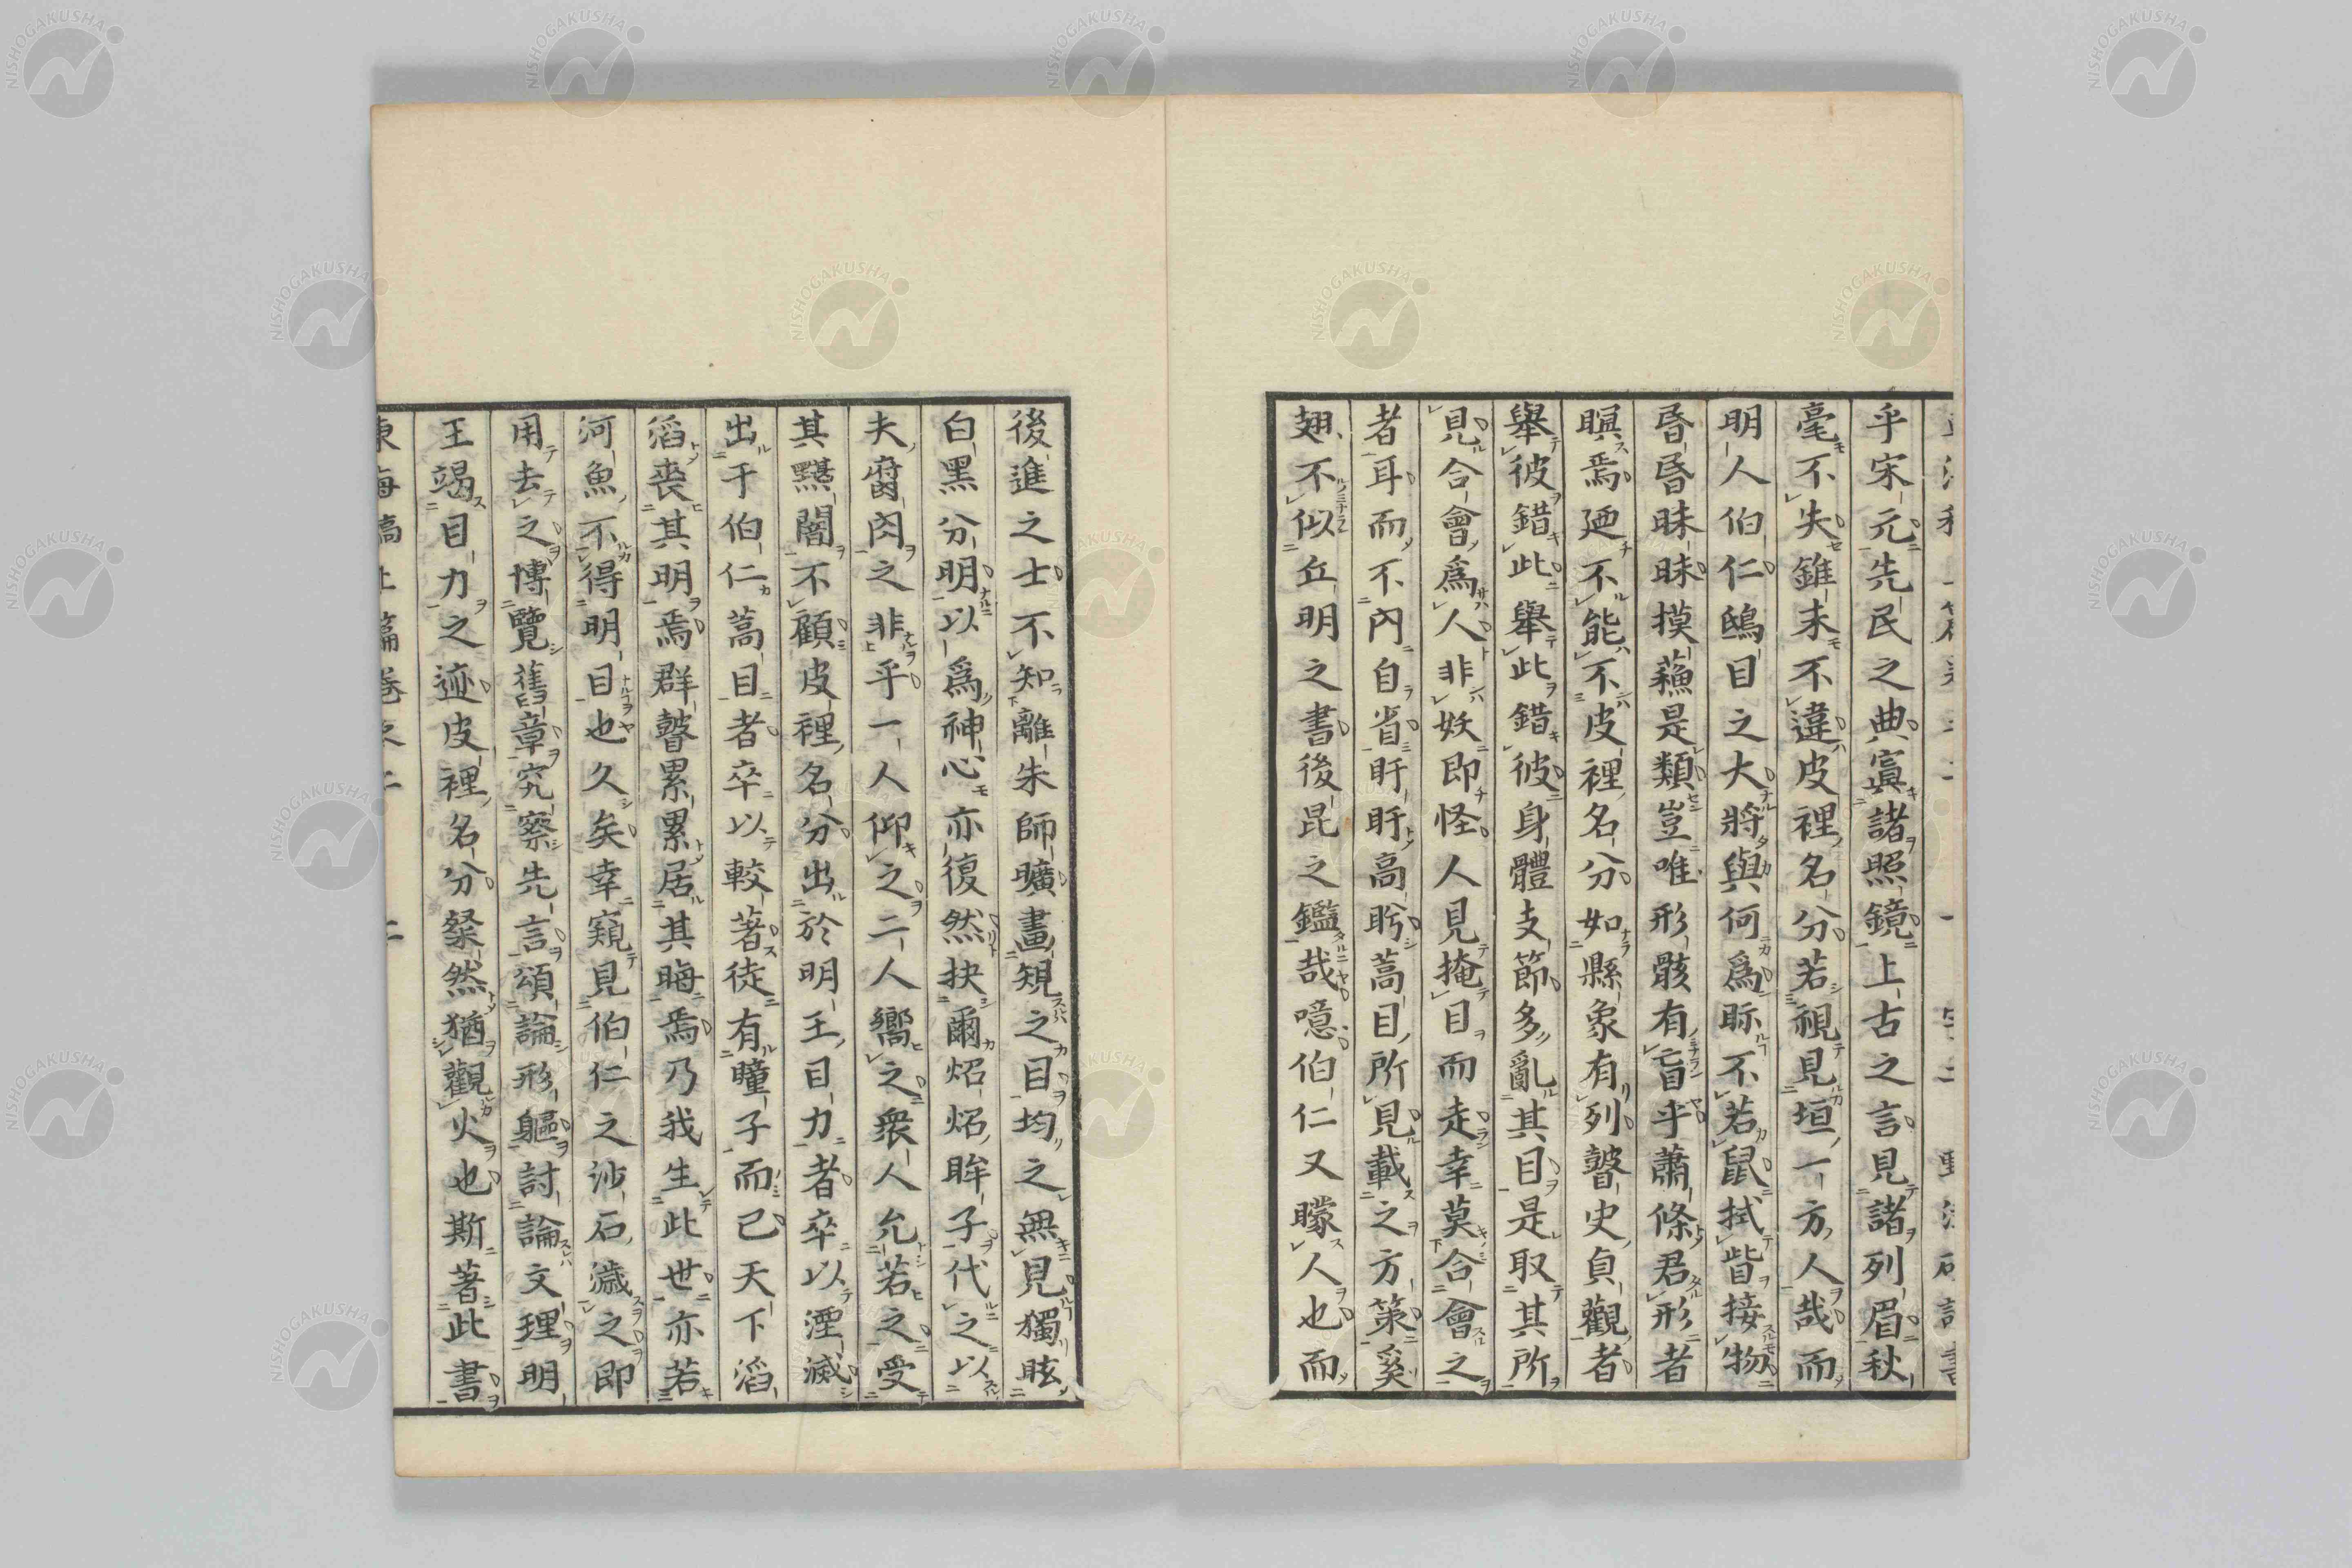 乎宋元先民之典寘諸照鏡上古之言見諸列眉秋
毫不失錐末不違皮裡名分若視見垣一方人哉而
明人伯仁鴟目之大將與何爲眎不若鼠拭眥接物
昏昏昧昧摸蘓是類豈唯形骸有盲乎蕭條君形者
瞑焉廼不能不皮裡名分如縣象有列瞽史貞觀者
舉彼錯此舉此錯彼身體支節多亂其目是取其所
見合會爲人非妖即怪人見掩目而走幸莫合會之
者耳而不內自省盱盱高盻蒿目所見載之方策奚
翅不似丘明之書後昆之鑑哉噫伯仁又矇人也而
後進之士不知離朱師曠畫規之目均之無見獨眩
白黑分明以爲神心亦復然抉爾炤炤眸子代之以
夫腐肉之非乎一人仰之二人嚮之衆人允若之受
其黮闇不顧皮裡名分出於明王目力者卒以湮滅
出于伯仁蒿目者卒以較著徒有瞳子而已天下滔
滔喪其明焉群瞽累累居其晦焉乃我生此世亦若
河魚不得明目也久矣幸窺見伯仁之沙石濊之即
用去之博覽舊章究察先言頌論形軀討論文理明
王竭目力之迹皮裡名分粲然猶觀火也斯著此書
NISHOGAKUSHA